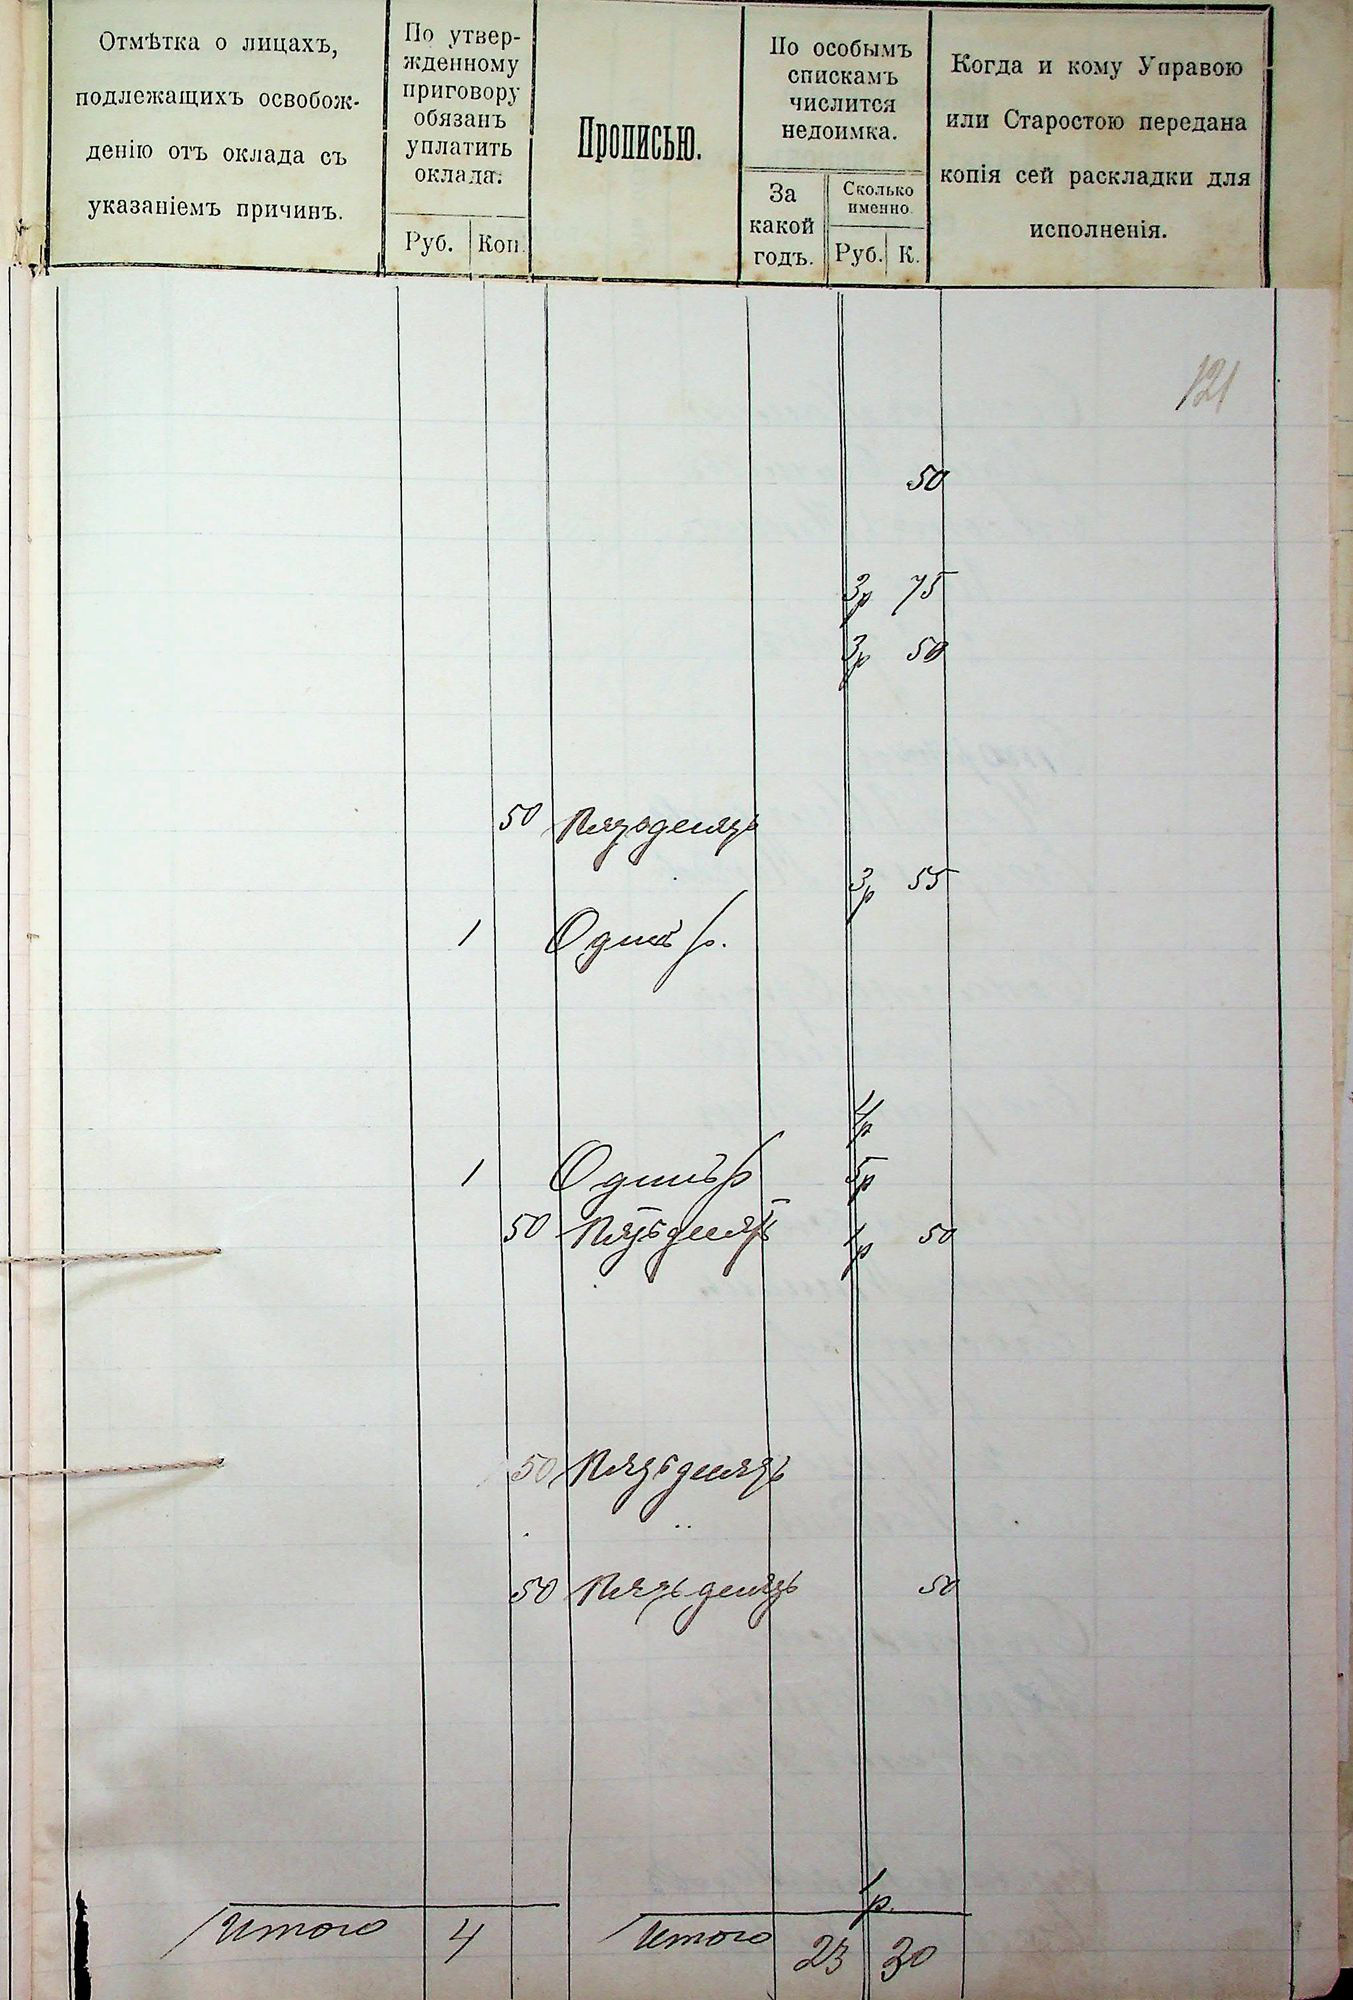 Отмѣтка о лицахъ,
подлежащихъ освобож-
денію отъ оклада съ
указаніемъ причинъ.
По утвер-
жденному
приговору
обязанъ
уплатить
оклада:
Руб. Коп.
Прописью.
По особымъ
спискамъ
числится
недоимка.
За
какой
годъ.
Сколько
именно
Руб. К.
Когда и кому Управою
или Старостою передана
копія сей раскладки для
исполненія.
121
50
3р 75
3р 50
50 Пятьдесятъ
3р 55
1 Одинъ р.
4р
1 Одинъ р 5р
50 Пятьдесятъ 1р 50
50 Пятьдесятъ
50 Пятьдесятъ 50
1р.
Итого 4 Итого 23 30